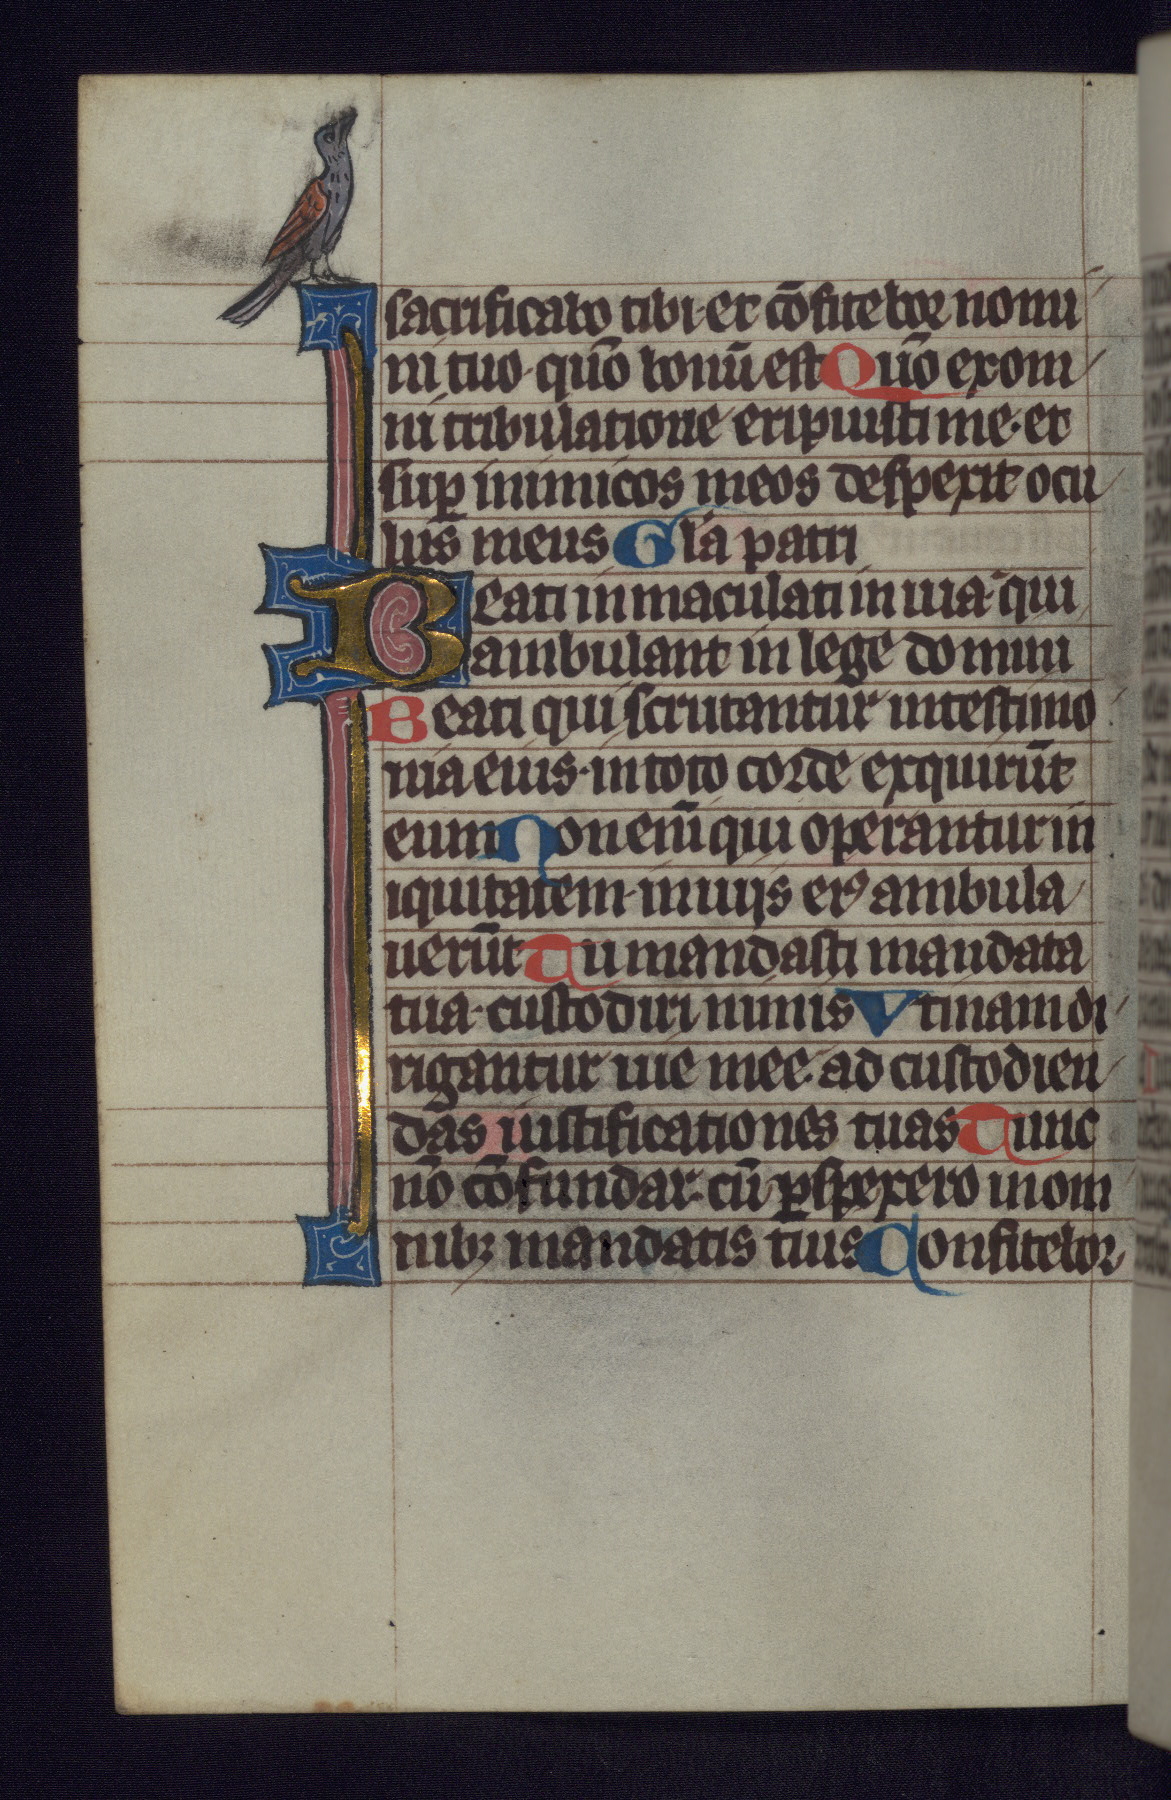 sacrificabo tibi· et cōfitebor nomi
ni tuo· quō bonū est Quō ex om
ni tribulatione eripuisti me· et
sup inimicos meos despexit ocu
lus meus Gl'a patri
Beati inmaculati in uia· qui
ambulant in lege domini
Beati qui scrutantur in testimo
nia eius· in toto corde exquirūt
eum Non enī qui operantur in
iquitatem· in uiis eiꝰ ambula
uerūt Tu mandasti mandata
tua· custodiri nimis Vtinam di
rigantur uie mee· ad custodien
dās iustificationes tuas Tunc
nō cōfundar· cū ꝑspexero in om
nibꝫ mandatis tuis Confitebor